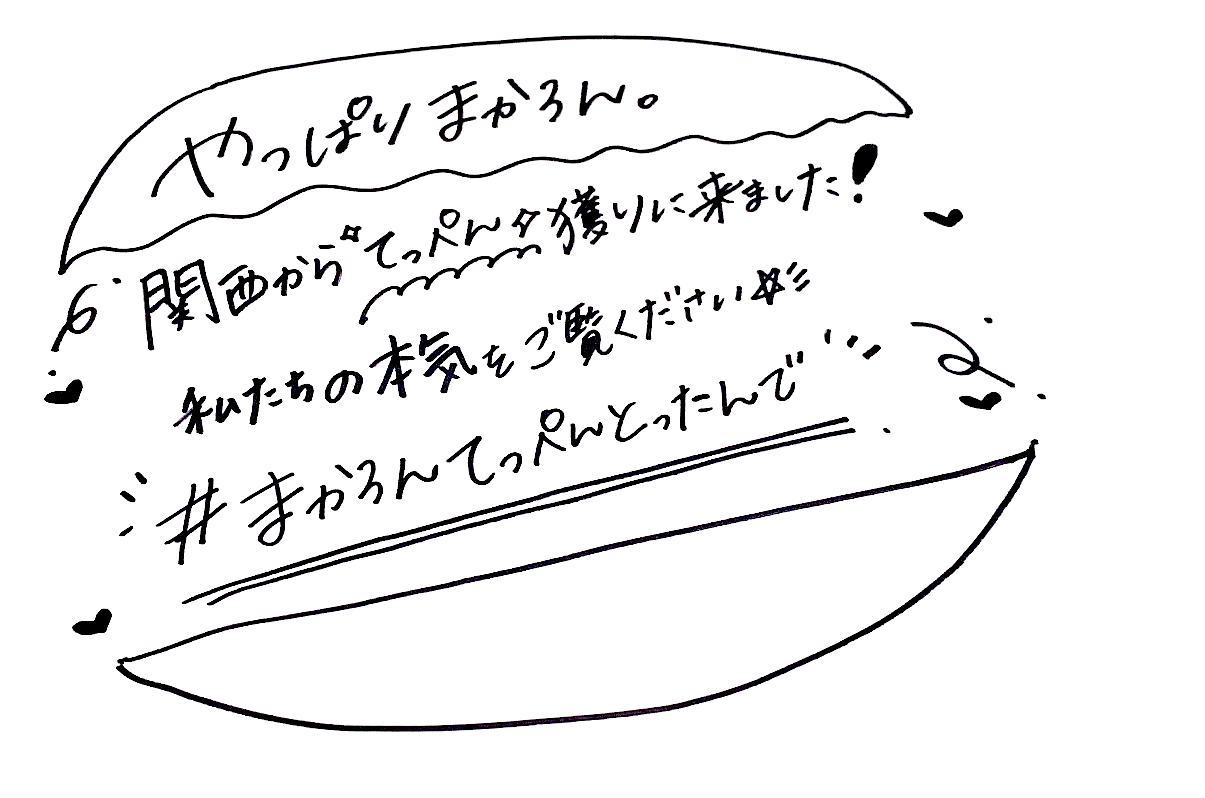 やっぱりまかろん。
関西から"てっぺん"獲りに来ました!
私たちの本気をご覧ください☆彡
#まかろんてっぺんとったんで